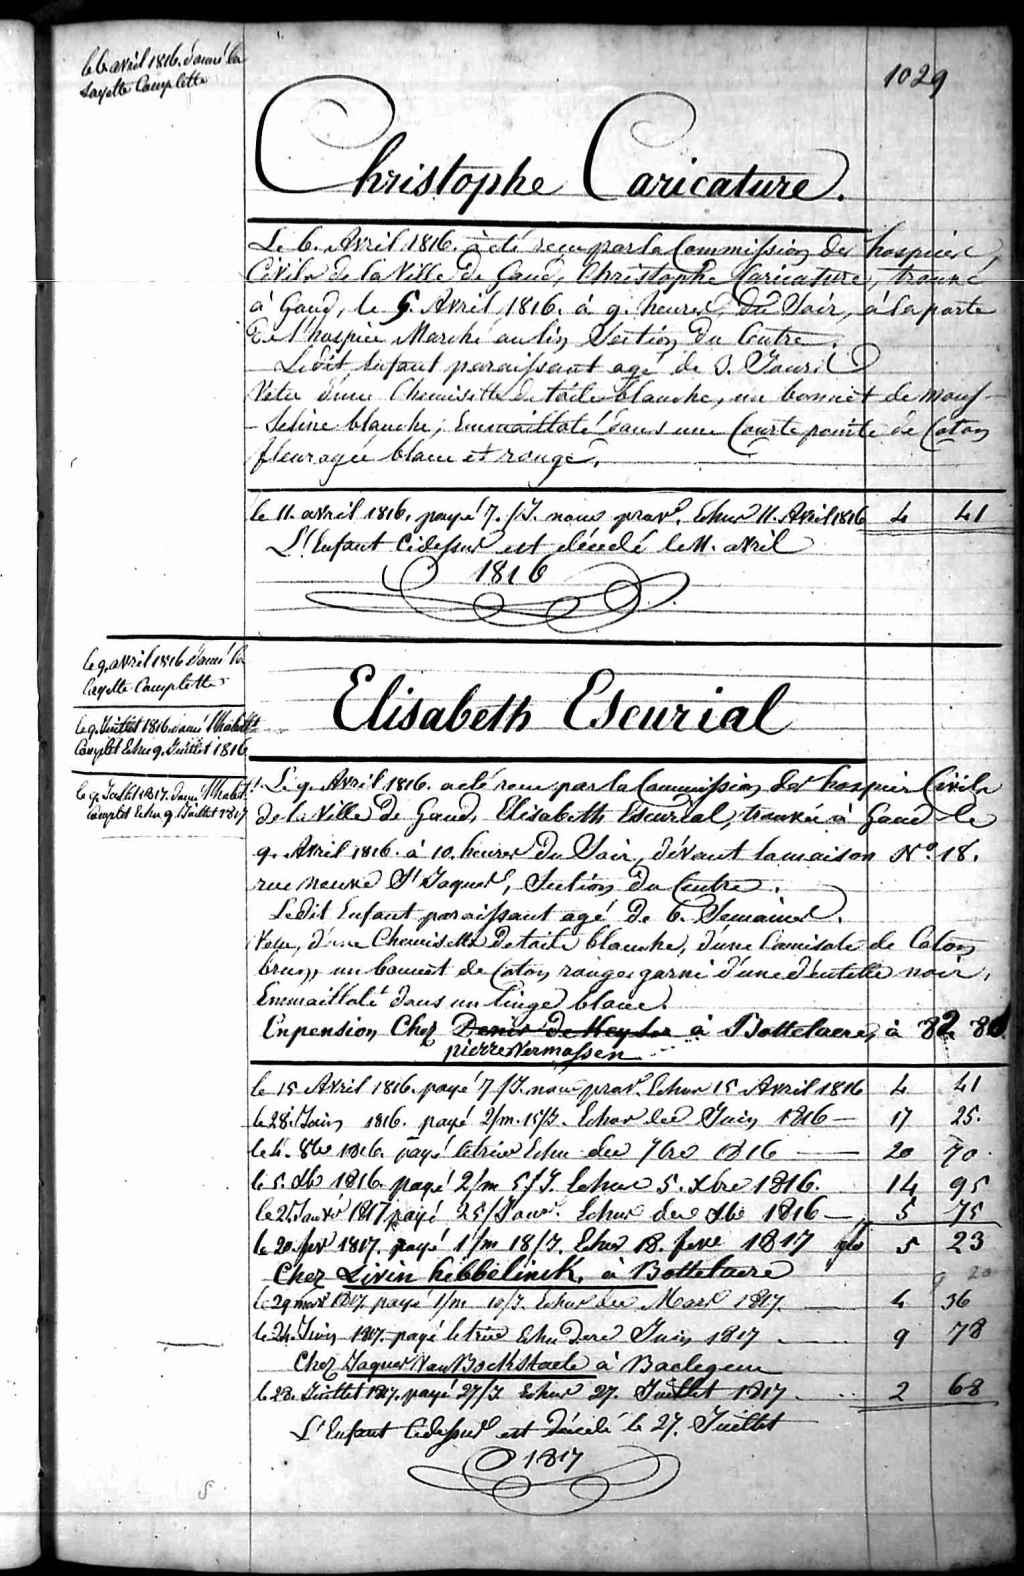 le 6 avril 1816. donné la
Layette Complette
1029
Christophe Caricature.
Le 6. Avril 1816. à eté recu par la Commission des hospices
Civils de la Ville de Gand, Christophe Caricature, trouvé
à Gand, le 5. Avril 1816. à 9. heures du Soir, à la porte
De l'hospice Marché au lin Section du Centre.
Ledit Enfant paraissant agé de 3. Jours
Vetu d'une Chemisette de toile blanche, un bonnet de mous-
-seline blanche, Emmailloté dans une Courte pointe de Coton
fleuragée blanc et rouge.
le 11. avril 1816. payé 7./J. nour prov.e Echus 11. Avril 1816 4 41
L'Enfant Cidessus est décedé le 11. avril
1816
le 9. avril 1816 donné la
Layette Complette
Elisabeth Escurial
le 9. Juillet 1816. donné l'habillt
Complet Echu 9. Juillet 1816
le 9. Juillet 1817. donné l'habillt
Complet Echu 9. Juillet 1817
Le 9. Avril 1816. a eté recu par la Commission des hospices Civils
de la Ville de Gand, Elisabeth Escurial, trouvée à Gand le
9. Avril 1816. à 10. heures du Soir, dévant la maison No. 18.
rue neuve St Jaques, Section du Centre.
Ledit Enfant paraissant agé de 6. Semaines.
Vetu, d'une Chemisette de toile blanche, d'une Camisole de Coton
brun, un bonnet de Coton rouge garni d'une déntelle noir,
Emmailloté dans un linge blanc.
En pension Chez Denis De Keyser à Bottelaere, à 82
pierre Vermassen
le 15 Avril 1816. payé 7/J. nour prov.e Echus 15 Avril 1816 4 41
le 28. Juin 1816. payé 2/m. 15/J. Echus der Juin 1816 17 25.
le 4. 8bre 1816. payé letrime Echu der 7bre 1816 20 70.
le 5. Xbre 1816. payé 2/m 5/J. Echus 5. xbre 1816. 14 95
le 2. Janvé 1817 payé 25/Jour. Echus der Xbre 1816 5 75
le 20. fevr 1817. payé 1/m 18/J. Echus 18. fevr 1817 5 23
Chez Livin hebbelinck, à Bottelaere 9 20
le 29 mars 1817. payé 1/m 10/J. Echus der Mars 1817. 4 36
le 24. Juin 1817. payé letrime Echu der Juin 1817 9 78
Chez Jaques Van Bockstaele à Baelegem
le 28. Juillet 1817. payé 27/J Echus 27. Juillet 1817 2 68
L'Enfant Cidessus est décedé le 27. Juillet
1817